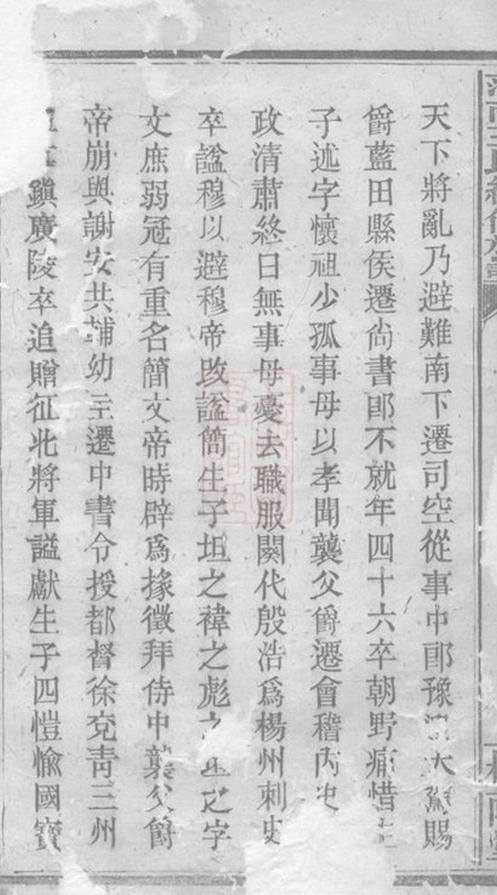 氏續修族譜
天下將亂乃避難南下遷司空從事中郎豫大駕賜
爵藍田縣侯遷尚書郎不就年四十六卒朝野痛惜生
子述字懷祖少孤事母以孝聞襲父爵遷會稽內史
政清肅終日無事母憂去職服闋代殷浩爲楊州刺史
卒諡穆以避穆帝改諡簡生子坦之禕之彪之坦之字
文庶弱冠有重名簡文帝時辟爲掾徵拜侍中襲父爵
帝崩與謝安共輔幼主遷中書令授都督徐兗靑三州
鎭廣陵卒追贈征北將軍謚獻生子四愷愉國寶